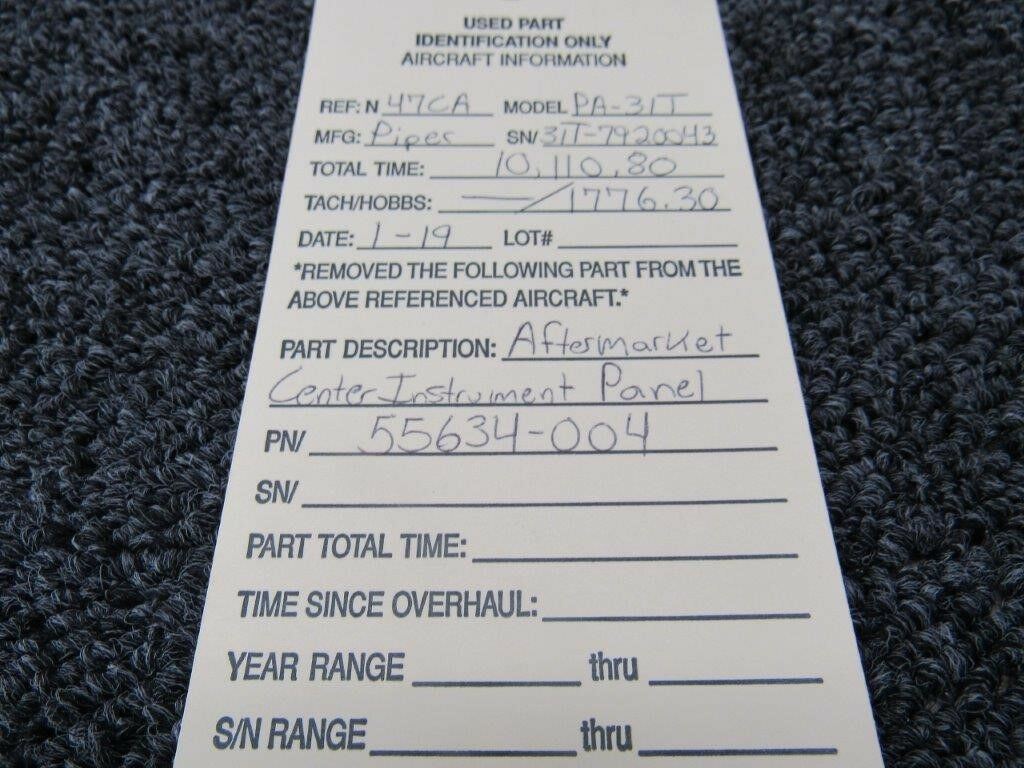 USED PART
IDENTIFICATION ONLY
AIRCRAFT INFORMATION
REF: N 47CA MODEL PA-31T
MFG: Piper SN/ 31T-7920043
TOTAL TIME: 10,110.80
TACH/HOBBS: —/1776.30
DATE: 1-19 LOT#
*REMOVED THE FOLLOWING PART FROM THE
ABOVE REFERENCED AIRCRAFT.*
PART DESCRIPTION: Aftermarket
Center Instrument Panel
PN/ 55634-004
SN/
PART TOTAL TIME:
TIME SINCE OVERHAUL:
YEAR RANGE thru
S/N RANGE thru